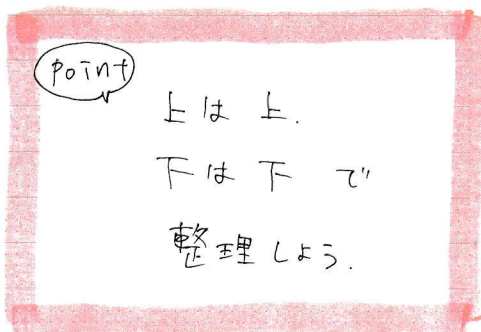 point
上は上.
下は下で
整理しよう.